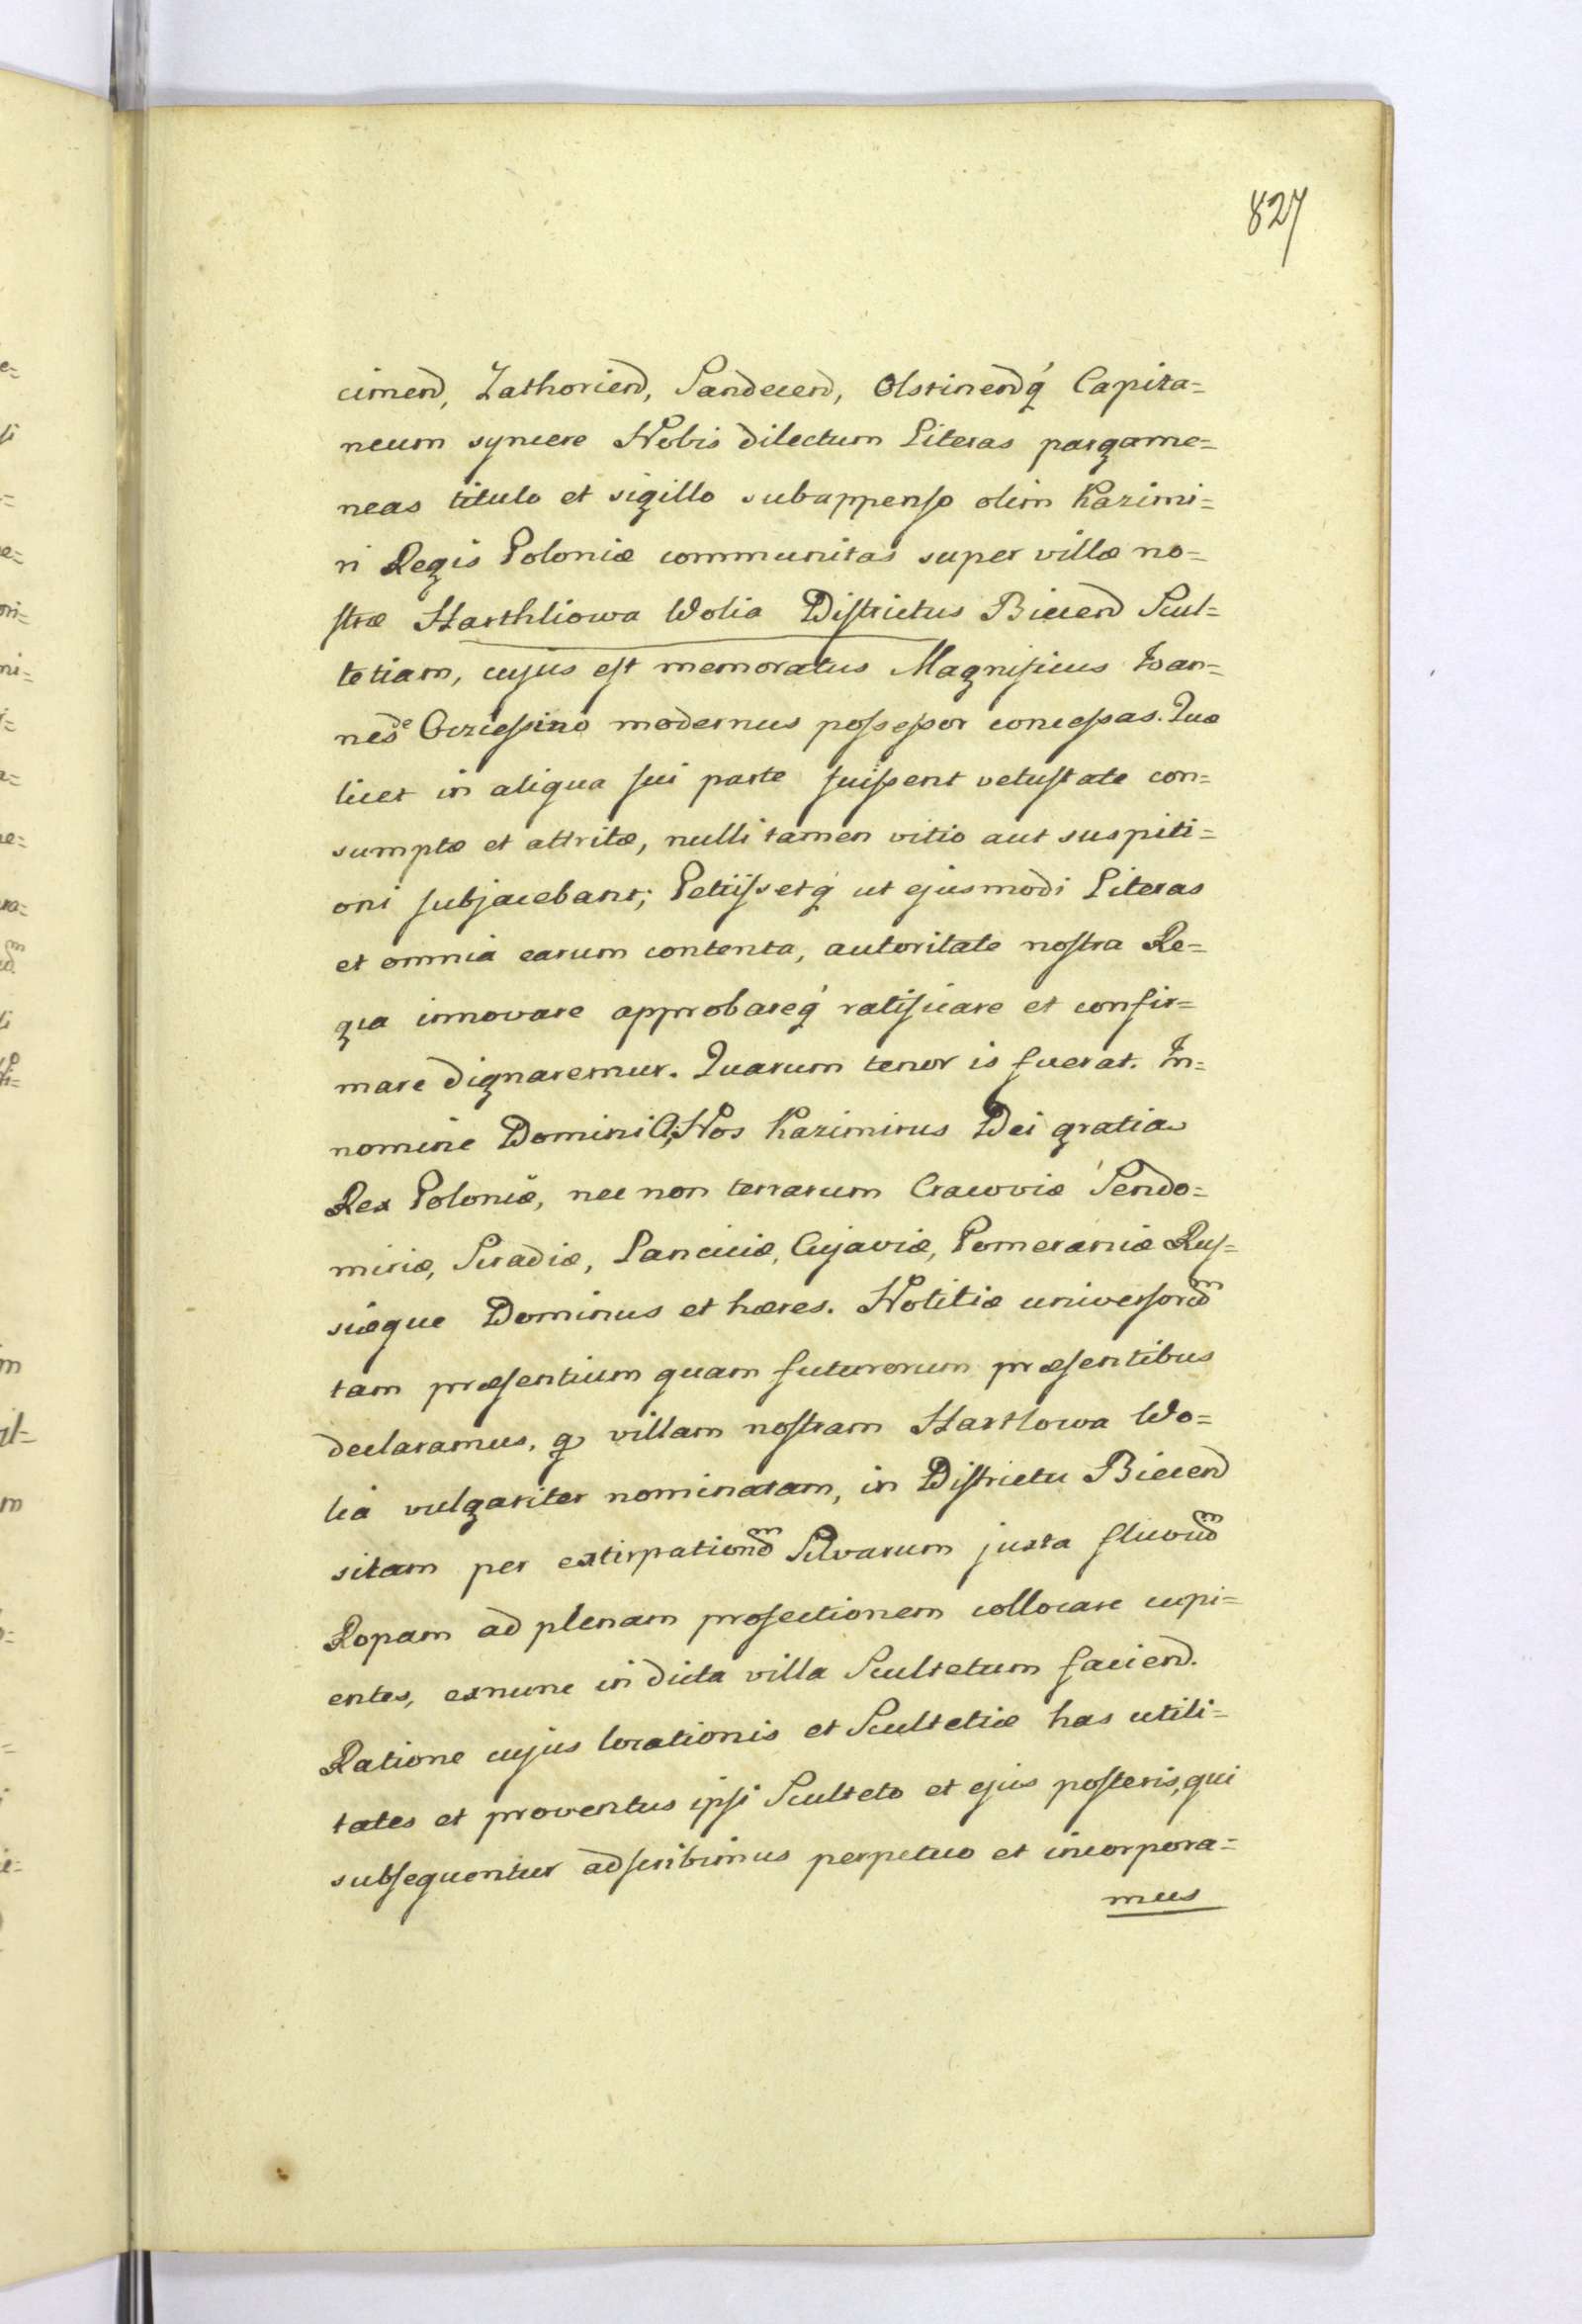 827
cimend, Zathoriend, Sandecend, Olstinendq́ Capita=
neum syncere Nobis dilectum Literas pargame=
neas titulo et sigillo subappenso olim Kazimi=
ri Regis Poloniæ communitas super villæ no=
stræ Harthliowa Wolia Districtus Biecend Scul=
tetiam, cujus est memoratus Magnificus Ioan=
nes de Ocziessino modernus possessor concessas. Quæ
licet in aliqua sui parte fuissent vetustate con=
sumptæ et attritæ, nulli tamen vitio aut suspiti=
oni subjacebant; Petiissetq́ ut ejusmodi Literas
et omnia earum contenta, autoritate nostra Re=
gia innovare approbareq́ ratificare et confir=
mare dignaremur. Quarum tenor is fuerat. In=
nomine Domini A; Nos Kazimirus Dei gratia
Rex Poloniæ, nec non terrarum Cracoviæ Sendo=
miriæ, Siradiæ, Lanciciæ, Cujaviæ, Pomeraniæ Rus=
siæque Dominus et hæres. Notitiæ universordm
tam præsentium quam futurorum præsentibus
declaramus, q villam nostram Hartlowa Wo=
lia vulgariter nominatam, in Districtu Biecend
sitam per extirpationdm Silvarum juxta fluvidm
Ropam ad plenam profectionem collocare cupi=
entes, exnunc in dicta villa Scultetum faciend.
Ratione cujus locationis et Scultetiæ has utili=
tates et proventus ipsi Sculteto et ejus posteris, qui
subsequentur adscribimus perpetuo et incorpora=
mus